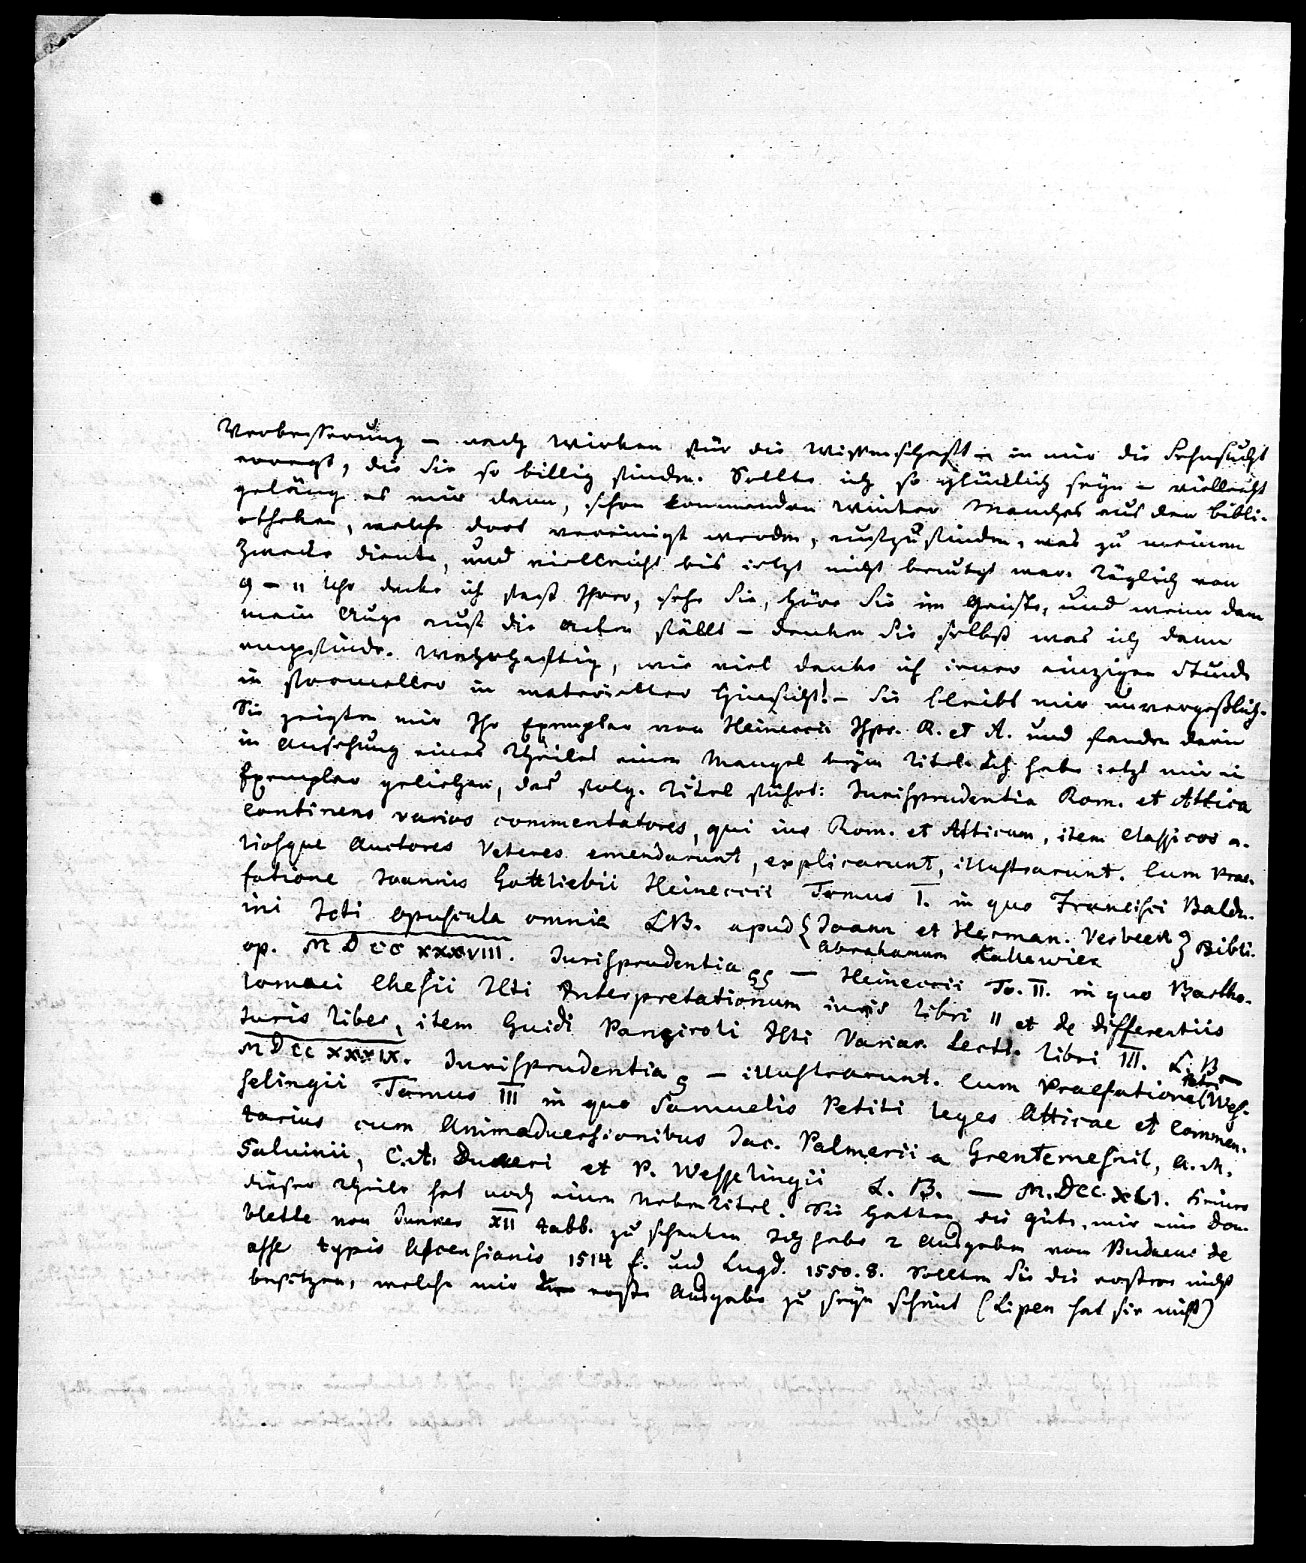 Verbesserung – nach Wirken für die Wissenschaft – in mir die Sehnsucht
erregt, die Sie so billig finden. Sollte ich so glücklich seyn – vielleicht
geläng es mir dann, schon kommenden Winter Manches aus den Bibli-
otheken, welche dort vereinigt werden, aufzufinden, was zu meinem
Zwecke diente, und vielleicht bis jetzt nicht benutzt war. Täglich von
9 – 11 Uhr denke ich fast Ihrer, sehe Sie, höre Sie im Geiste, und wenn dann
mein Auge auf die Acten fällt – denken Sie selbst was ich dann
empfinde. Wahrhaftig, wie viel danke ich jener einzigen Stunde
in formeller in materieller Hinsicht! – Sie bleibt mir unvergeßlich.
Sie zeigten mir Ihr Exemplar von Heineccii Jspr. R. et A. und fanden darin
in Ansehung eines Theiles einen Mangel beym Titel. Ich habe jetzt mir ein
Exemplar geliehen, das folg. Titel führt: Jurisprudentia Rom. et Attica
continens varios commentatores, qui ius Rom. et Atticum, item classicos a-
liosque Auctores Veteres emendarunt, explicarunt, illustrarunt. Cum Prae-
fatione Joannis Gottliebii Heineccii Tomus I. in quo Francisci Baldu-
ini Jcti opuscula omnia LB. apud { Joann et Herman. Verbeek } Bibli-
Abrahamum Kallewier
op. MDCCXXXVIII. Jurisprudentia – Heineccii To. II. in quo Bartho-
lomaei Chesii JCti Interpretationum iuris libri II et de differentiis
Juris liber, item Guidi Panziroli JCti Variar. Lectt. libri III. L. B.
MDCCXXXIX. Jurisprudentia – illustrarunt. Cum Praefatione Petri Wes-
selingii Tomus III in quo Samuelis Petiti leges Atticae et Commen-
tarius cum Animaduersionibus Jac. Palmerii a Grentemesnil, A. M.
Saluinii, C. A. Dukeri et P. Wesselingii L. B. – M.DCC.XLI. Keiner
dieser Theile hat noch einen Nebentitel. Sie hatten die Güte, mir eine Dou-
blette von XII tabb. zu schenken Ich habe 2 Ausgaben von Budaeus de
asse typis Ascensianis 1514 f. und Lugd. 1550. 8. Sollten Sie die erstere nicht
besitzen, welche mir die erste Ausgabe zu seyn scheint (Lipen hat sie nicht)